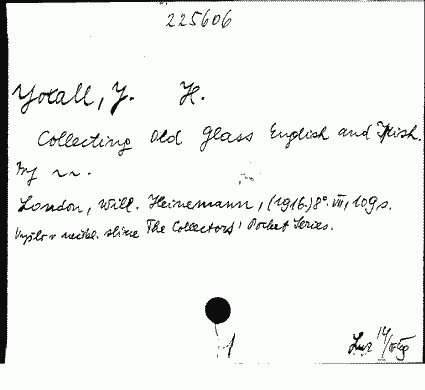 225606
Yoxall, J. H.
Collecting Old Glass English and Irish.
By ~~.
London, Will. Heinemann, (1916.) 8°. VII, 109 s.
Vyšlo v neděl. sbírce The Collectors' Pocket Series.
1
14/